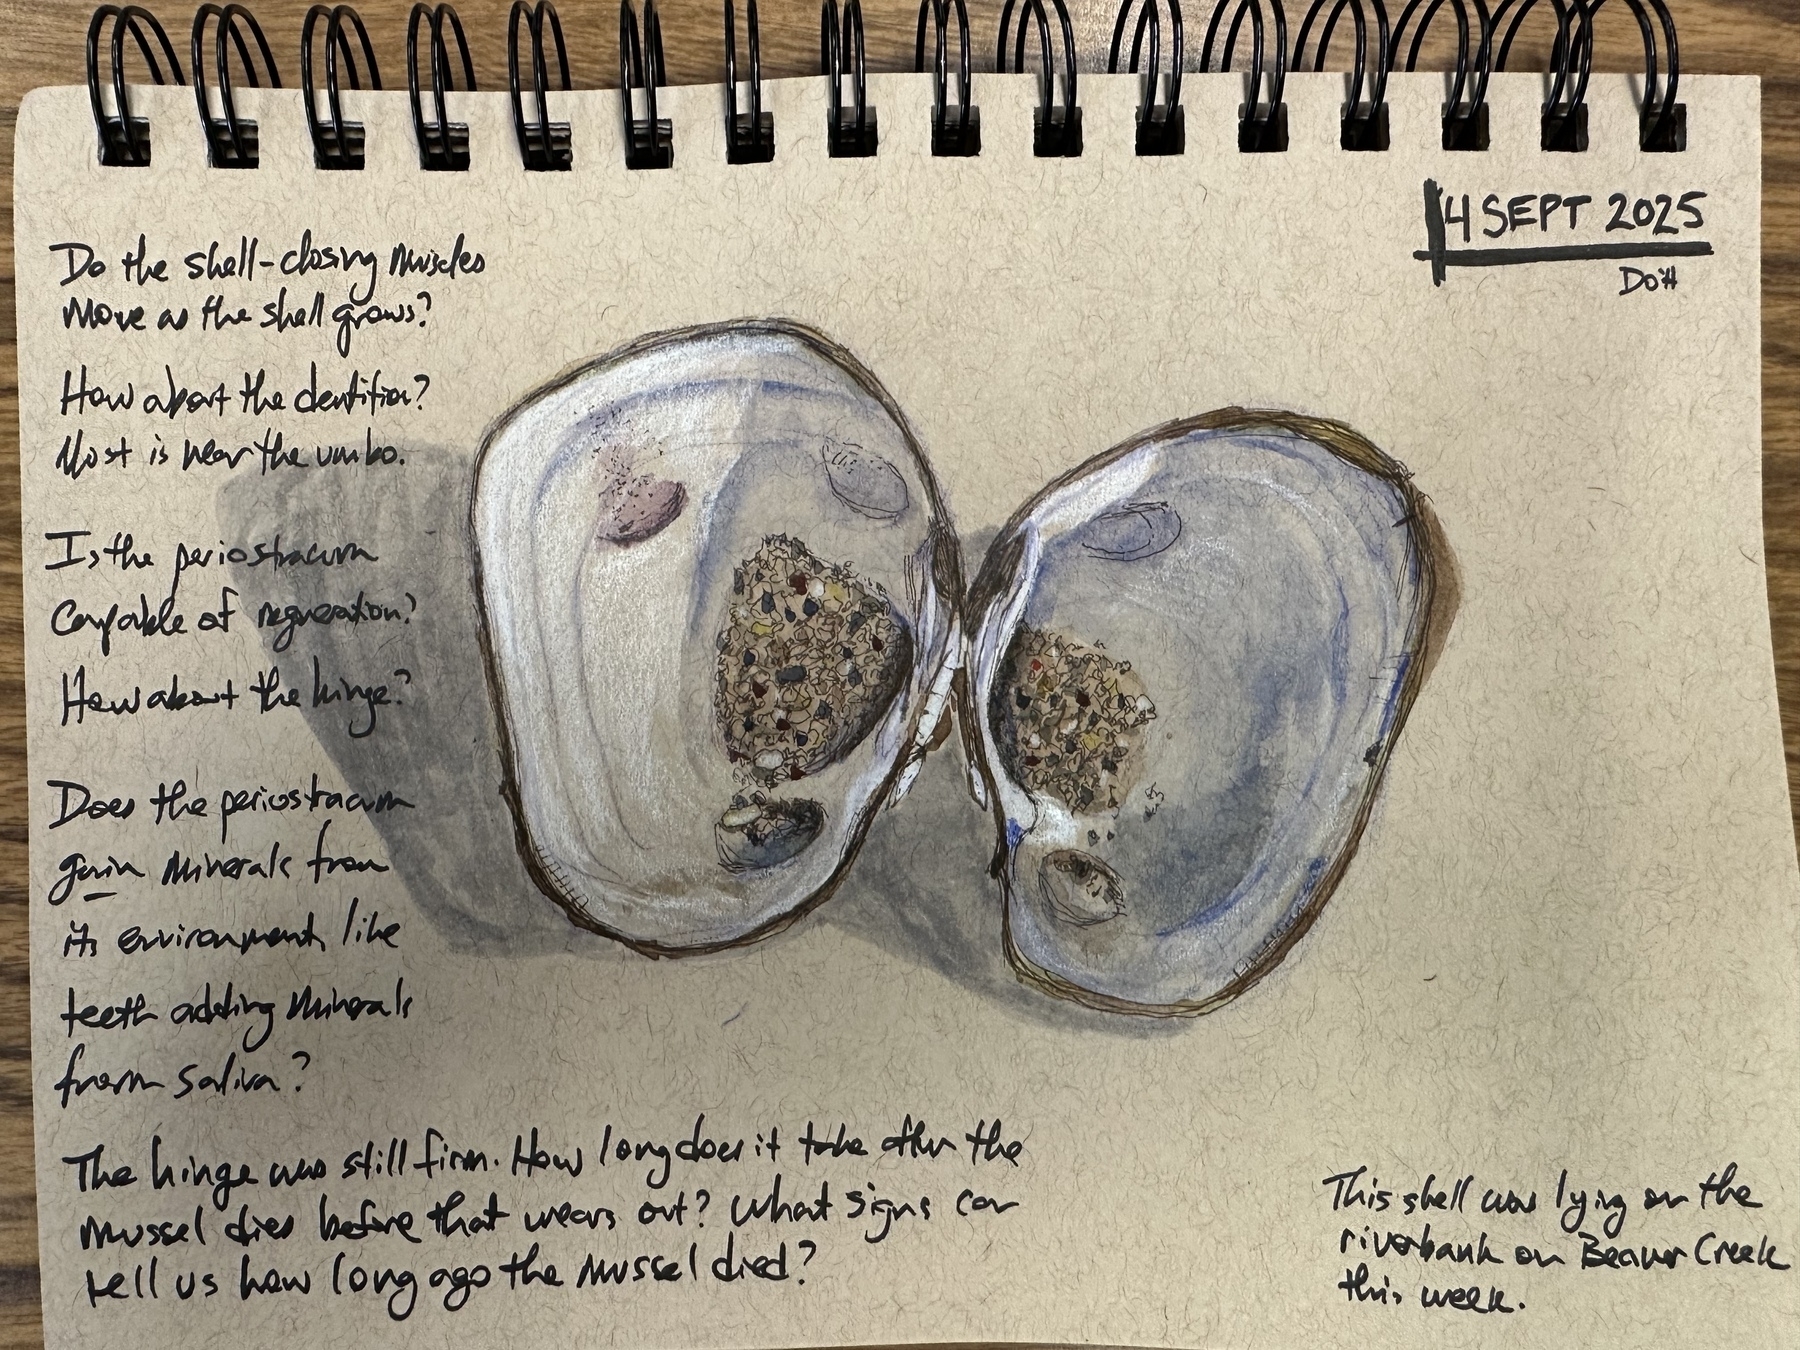 4 SEPT 2025
Do the shell-closing muscles
move as the shell grows?
How about the dentition?
Most is near the umbo.
Is the periostracum
capable of regneration?
How about the hinge?
Does the periostracum
gain minerals from
its environment like
teeth adding minerals
from saliva?
The hinge was still firm. How long does it take after the
mussel dies before that wears out? What signs can
tell us how long ago the mussel died?
This shell was lying on the
riverbank on Beaver Creek
this week.